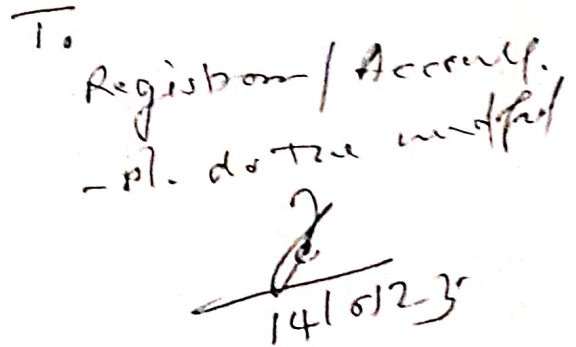 To
Registrar/Accounts.
- pl. do the needful
14/6/23